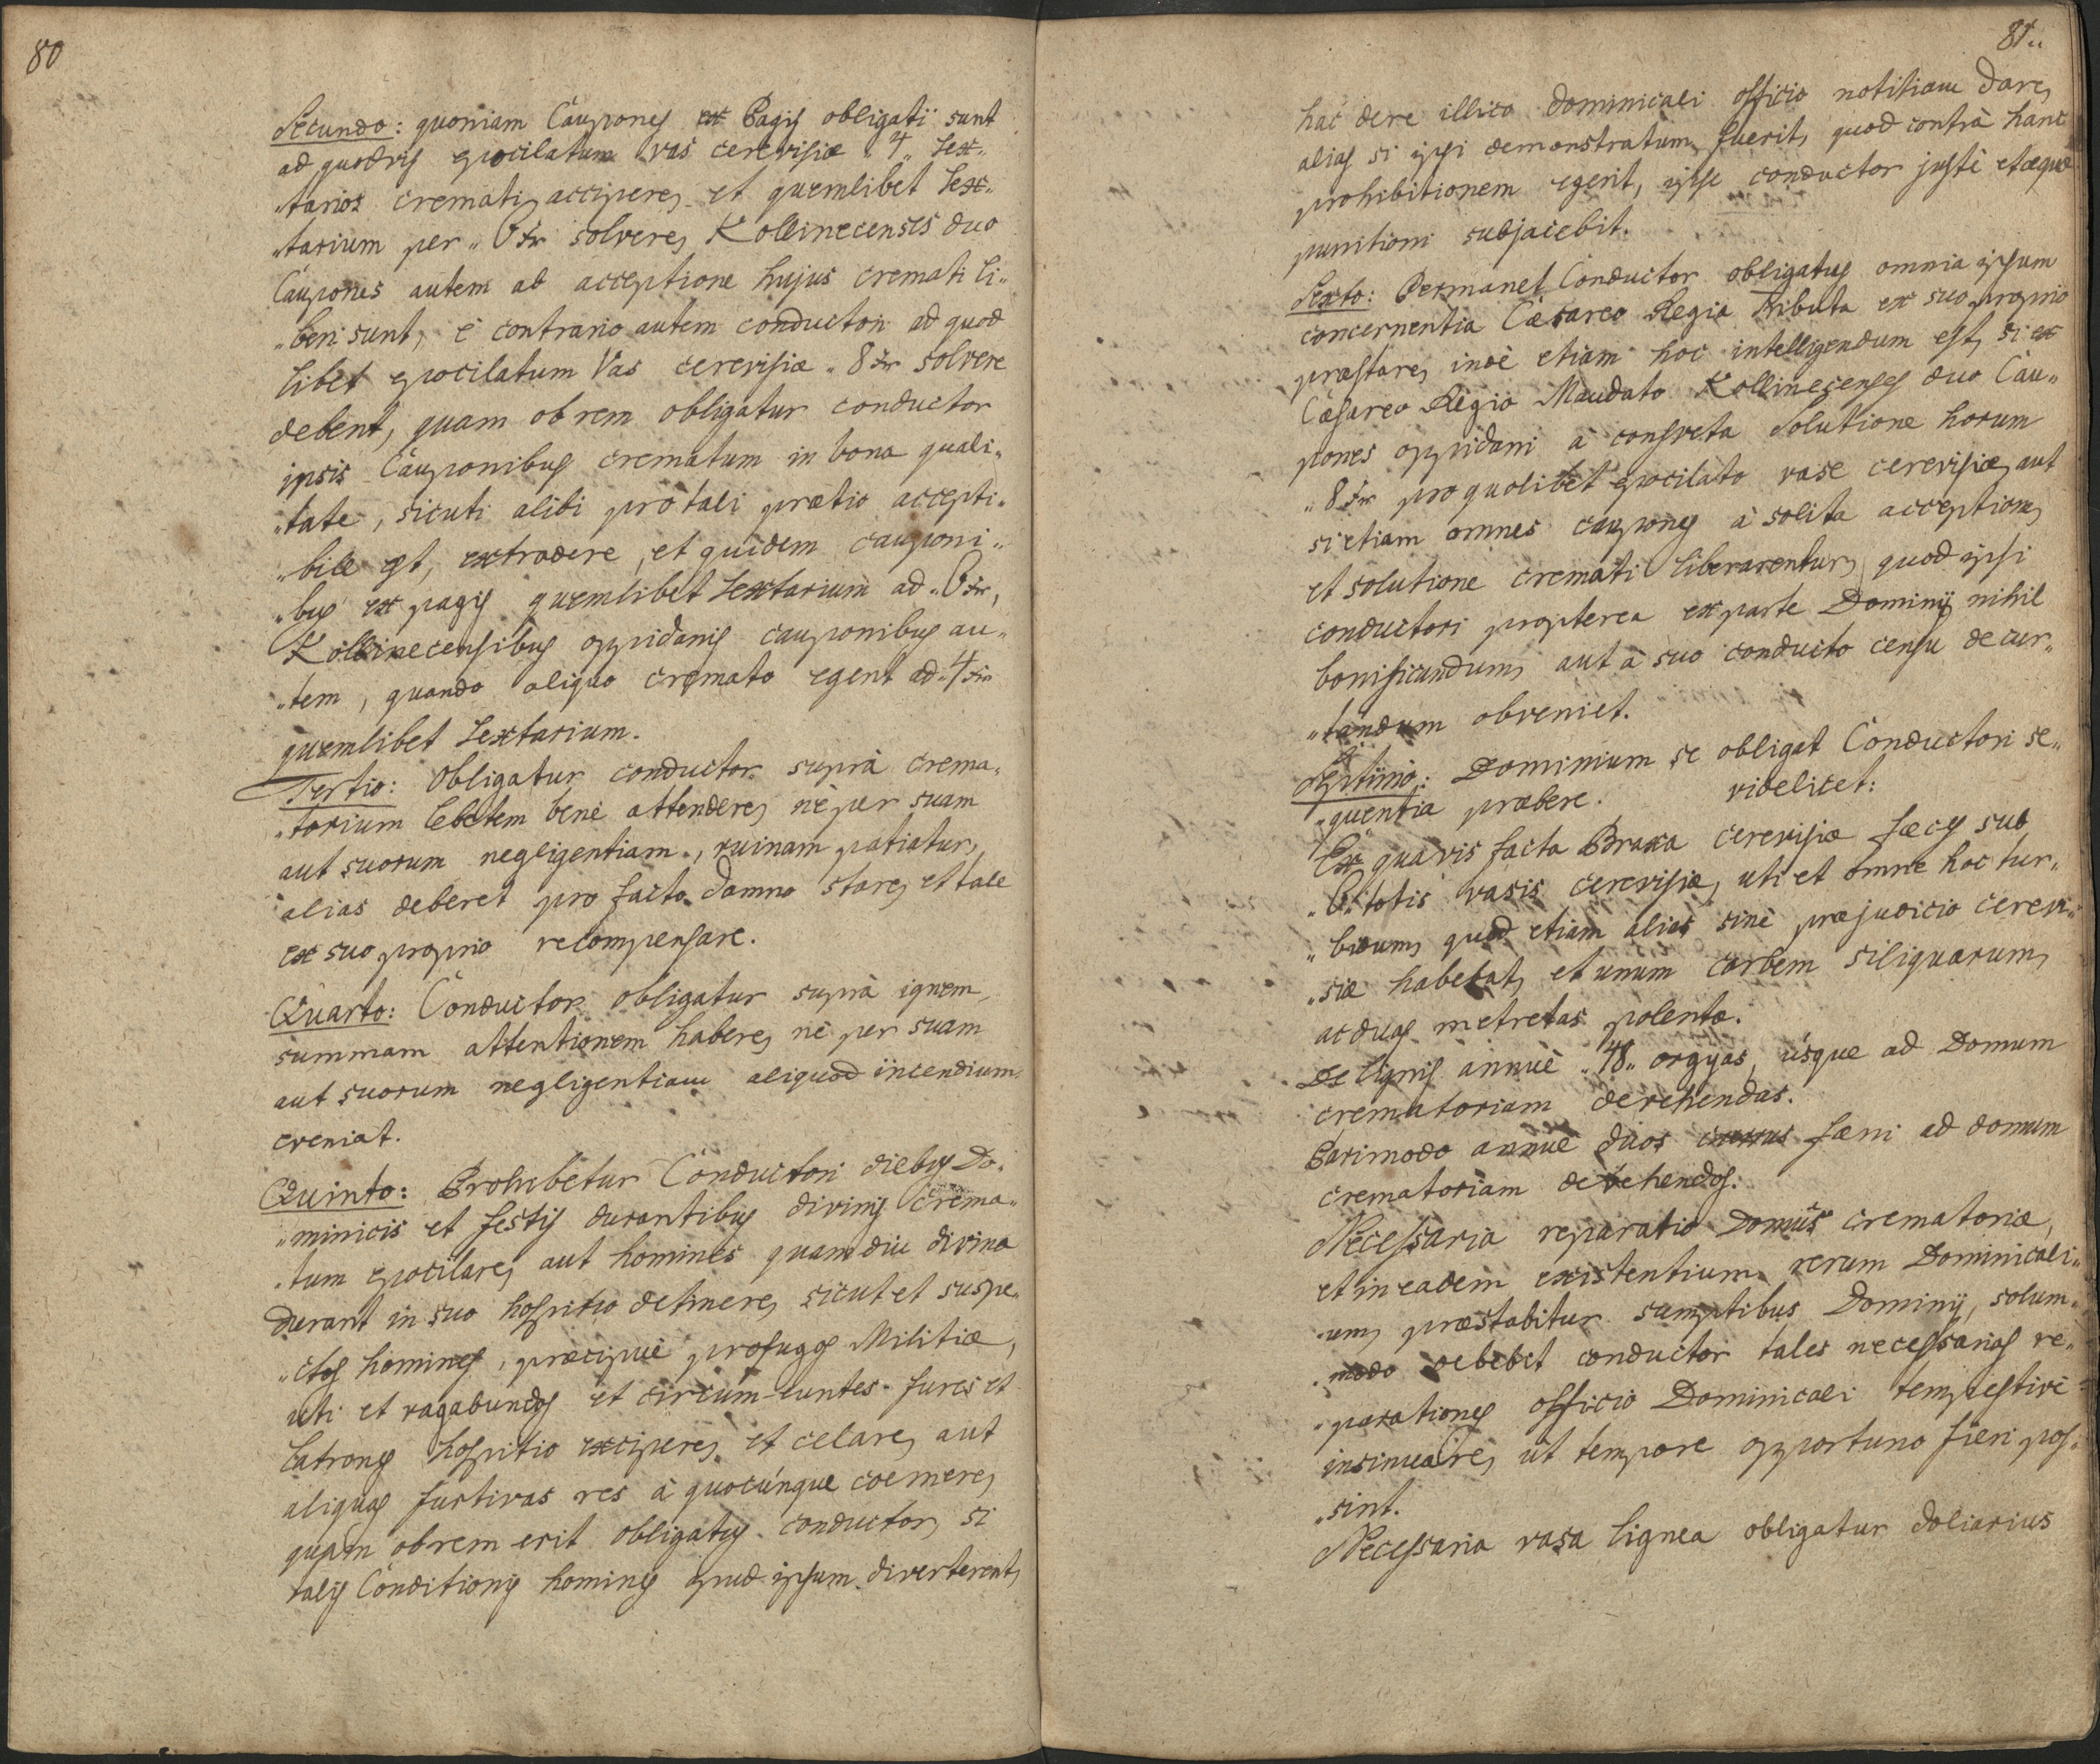 80
Secundo: quoniam Caupones ex Pagis obligati sunt
ad quodvis epocilatum vas cerevisiæ „4„ Sex„
„tarios cremati accipere, et quemlibet Sex„
„tarium per „6 xr solvere, Kollinecenses duo
Caupones autem ab acceptione hujus cremati li„
„beri sunt, è contrario autem conductori ad quod
libet epocilatum Vas cerevisiæ „8 xr solvere
debent, quam ob rem obligatur conductor
ipsis Cauponibus crematum in bona quali„
„tate, sicuti alibi pro tali prætio accepti„
„bile est, extradere, et quidem cauponi„
„bus ex pagis quemlibet Sextarium ad „6 xr,
Kollinecensibus oppidanis cauponibus au„
„tem, quando aliquo cremato egent ad „4 xr
quemlibet Sextarium.
Tertio: Obligatur conductor suprà crema„
„torium lebetem benè attendere, nè per suam
aut suorum negligentiam, ruinam patiatur,
alias deberet pro facto damno stare, et tale
ex suo proprio recompensare.
Quarto: Conductor obligatur suprà ignem
summam attentionem habere, nè per suam
aut suorum negligentiam aliquod incendium
eveniat.
Quinto: Prohibetur Conductori diebus Do„
„minicis et festis durantibus divinis crema„
„tum epocilare, aut homines quamdiu divina
durant in suo hospitio detinere, sicut et suspe„
„ctos homines, præcipuè profugos Militiæ,
uti et vagabundos et circum-euntes fures et
Latrones hospitio excipere, et celare, aut
aliquas furtivas res à quocúnque coemere,
quam obrem erit obligatus conductor, si
talis Conditionis homines apud ipsum diverterent,
81„
hac dere illico dominicali officio notitiam dare,
alias si ipsi demonstratum fuerit, quod contrà hanc
prohibitionem egerit, ipse conductor justè et æque
punitioni subjacebit.
Sexto: Permanet Conductor obligatus omnia ipsum
concernentia Cæsareo Regia Tributa ex suo proprio
præstare, indè etiam hoc intelligendum est, si ex
Cæsareo Regio Mandato Kollinecenses duo Cau„
pones oppidani à consveta Solutione horum
„8 xr pro quolibet epocilato vase cerevisiæ, aut
si etiam omnes caupones à solita acceptione,
et solutione cremati liberarentur, quod ipsi
conductori propterea ex parte Dominij nihil
bonificandum, aut à suo conducto censu decur„
„tandum obveniet.
Septimò: Dominium se obligat Conductori se„
„quentia præbere. videlicet:
Ex quavis facta Braxa cerevisiæ fæces sub
„6„ totis vasis cerevisiæ, uti et omne hoc tur„
„bidum, quod etiam alias sinè præjudicio cerevi„
„siæ habebat, et unum corbem siliquarum,
ac duas metretas polentæ.
De lignis annuè „48„ orgyas, úsque ad Domum
crematoriam devehendas.
Parimodo annuè duos currus fæni ad domum
crematoriam devehendos.
Necessaria reparatio Domûs crematoriæ,
et in eadem existentium rerum Dominicali„
„um, præstabitur sumptibus Dominij, solum„
„modo debebit conductor tales necessarias re„
„parationes officio Dominicali tempestivè
insinuare, ut tempore opportuno fieri pos„
„sint.
Necessaria vasa lignea obligatur doliarius